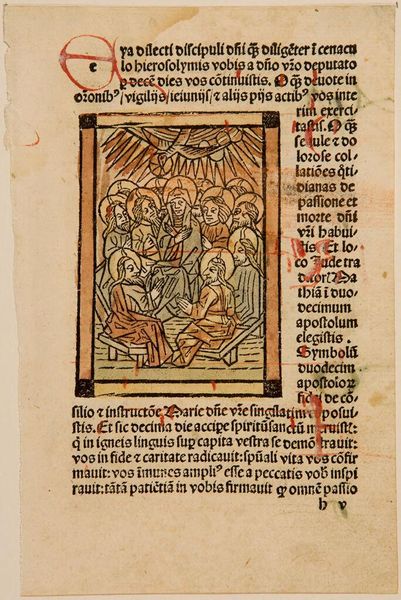 ya dilecti discipuli dñi q̃ȝ diligẽter ĩ cenacu
e lo hierosolymis vobis a dño vr̃o deputato
ꝑ decẽ dies vos cõtinuistis. O q̃ȝ deuote in
orõnibꝰ/ vigilijs/ ieiunijs/ ⁊ alijs pijs actibꝰ vos inte
rim exerci
tastis. O q̃ȝ
sedule ⁊ do
lorose col
latiões q̃ti
dianas de
passione et
morte dñi
vr̃i habui
stis. Et lo
co Jude tra
ditorꝭ Ma
thiã ĩ duo⸗
decimum
apostolum
elegistis.
Symbolũ
duodecim
apostoloꝝ
fidei de cõ⸗
silio ⁊ instructõe Marie dñe vr̃e singlatim
posui
stis. Et sic decima die accipe spiritũ sanctũ meruistꝭ:
q̃ in igneis linguis suꝑ capita vestra se demõstrauit:
vos in fide ⁊ caritate radicauit: spũali vita vos cõfir
mauit: vos ĩmunes ampliꝰ esse a peccatis vob̃ inspi
rauit: tãtã patiẽtiã in vobis firmauit ꝙ omnẽ passio
h v